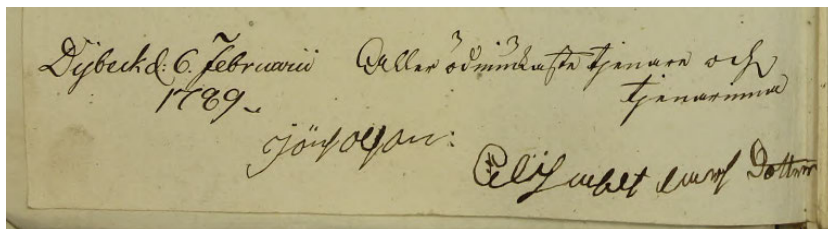 Dybeck d: 6. Februarii Aller ödmiukaste tjenare och
1789. tjenarinna
Jöns olson:
Elisabet Dotter